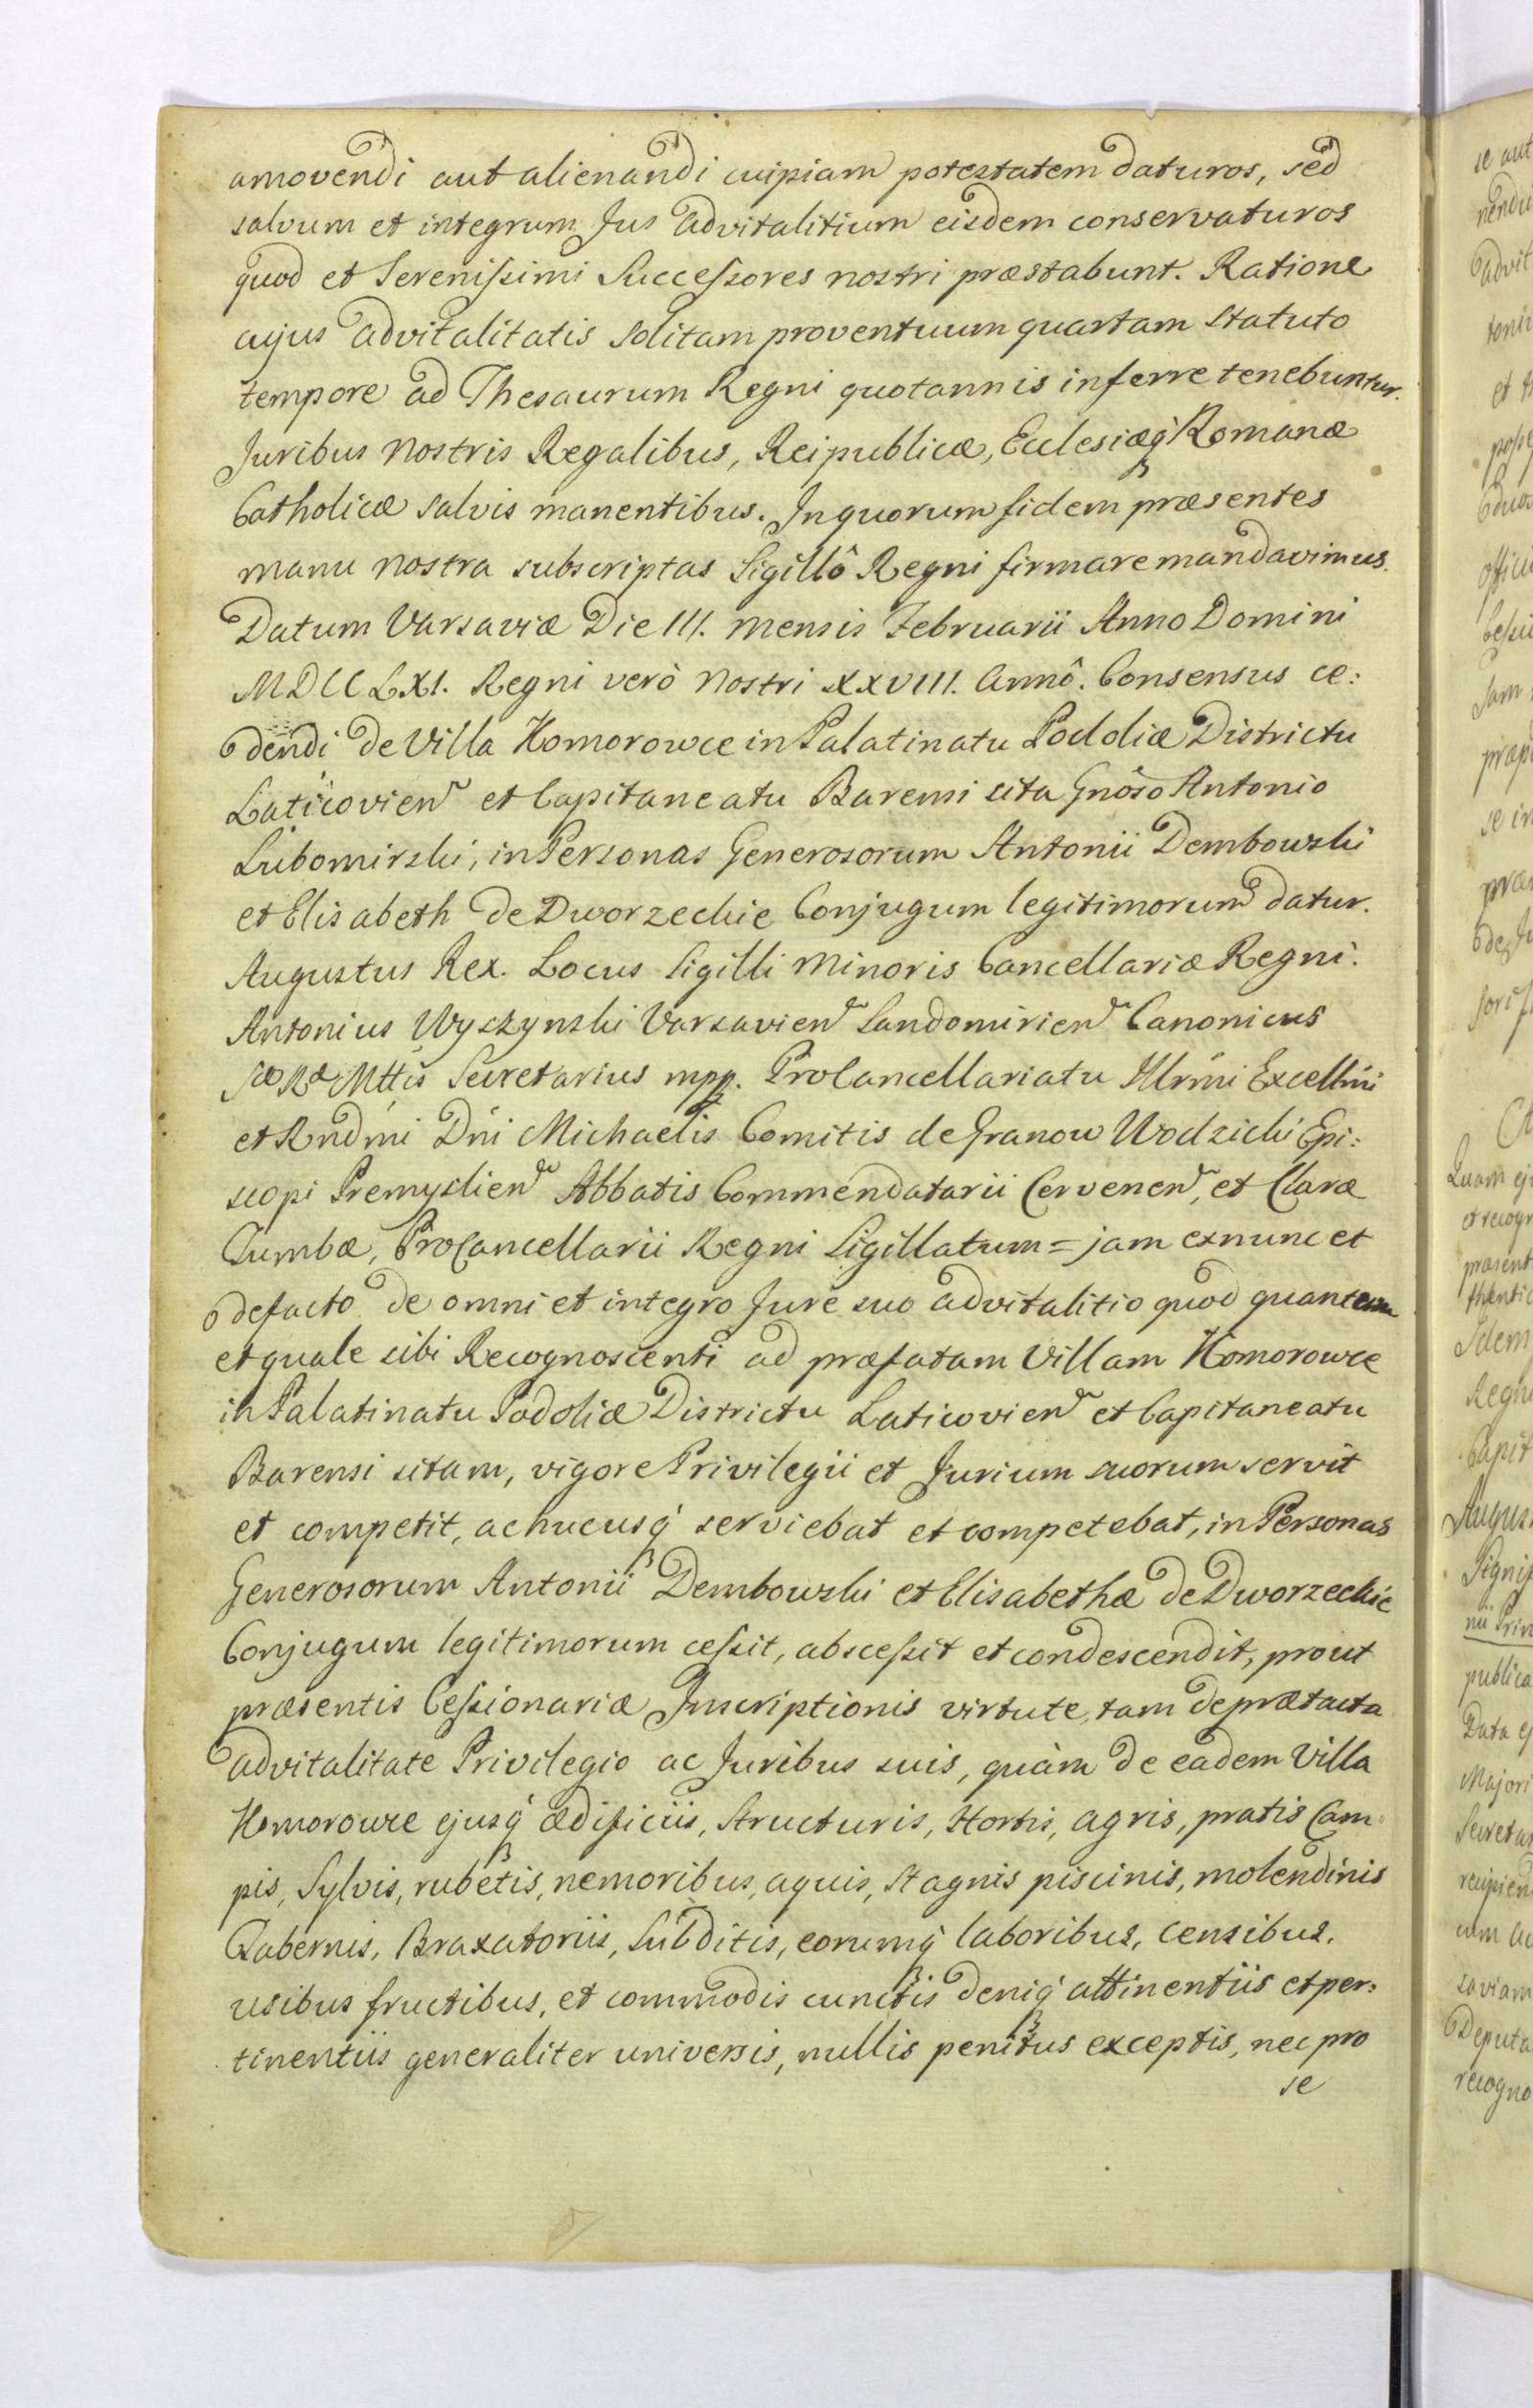 amovendi aut alienandi cuipiam potestatem daturos, sed
salvum et integrum Jus advitalitium eisdem conservaturos
quod et Serenissimi Successores nostri præstabunt. Ratione
cujus advitalitatis solitam proventuum quartam statuto
tempore ad Thesaurum Regni quotannis inferre tenebuntur.
Juribus nostris Regalibus, Reipublicæ, Ecclesiæq́ Romanæ
Catholicæ salvis manentibus. In quorum fidem præsentes
manu nostra subscriptas Sigillô Regni firmare mandavimus.
Datum Varsaviæ Die III. mensis Februarii Anno Domini
MDCCLXI. Regni verò nostri XXVIII. Annô. Consensus ce:
dendi de Villa Komorowce in Palatinatu Podoliæ Districtu
Laticovien et Capitaneatu Barensi sita Gnôso Antonio
Lubomirski, in Personas Generosorum Antonii Dembowski
et Elisabeth de Dworzeckie Conjugum legitimorum datur.
Augustus Rex. Locus Sigilli Minoris Cancellariæ Regni.
Antonius Wyszynski Varsavien Sandomirien Canonicus
Sæ Ræ Mttis Secretarius mpp. ProCancellariatu Illrmi Excellmi
et Rndmi Dni Michaelis Comitis de Granow Wodzicki Epi:
scopi Premyslien Abbatis Commendatarii Cervenen, et Claræ
Tumbæ, ProCancellarii Regni Sigillatum = jam exnunc et
defacto de omni et integro Jure suo advitalitio quod quantum
et quale sibi Recognoscenti ad præfatam Villam Komorowce
in Palatinatu Podoliæ Districtu Laticovien et Capitaneatu
Barensi sitam, vigore Privilegii et Jurium suorum servit
et competit, ac hucusq́ serviebat et competebat, in Personas
Generosorum Antonii Dembowski et Elisabethæ de Dworzeckie
Conjugum legitimorum cessit, abscessit et condescendit, prout
præsentis Cessionariæ Inscriptionis virtute, tam de prætacta
advitalitate Privilegio ac Juribus suis, quàm de eadem Villa
Komorowce ejusq́ ædificiis, Structuris, Hortis, agris, pratis Cam
pis, Sylvis, rubetis, nemoribus, aquis, Stagnis piscinis, molendinis
Tabernis, Braxatoriis, Subditis, eorumq́ laboribus, censibus,
usibus fructibus, et commodis cunctis deniq́ attinentiis et per:
tinentiis generaliter universis, nullis penitus exceptis, nec pro
se